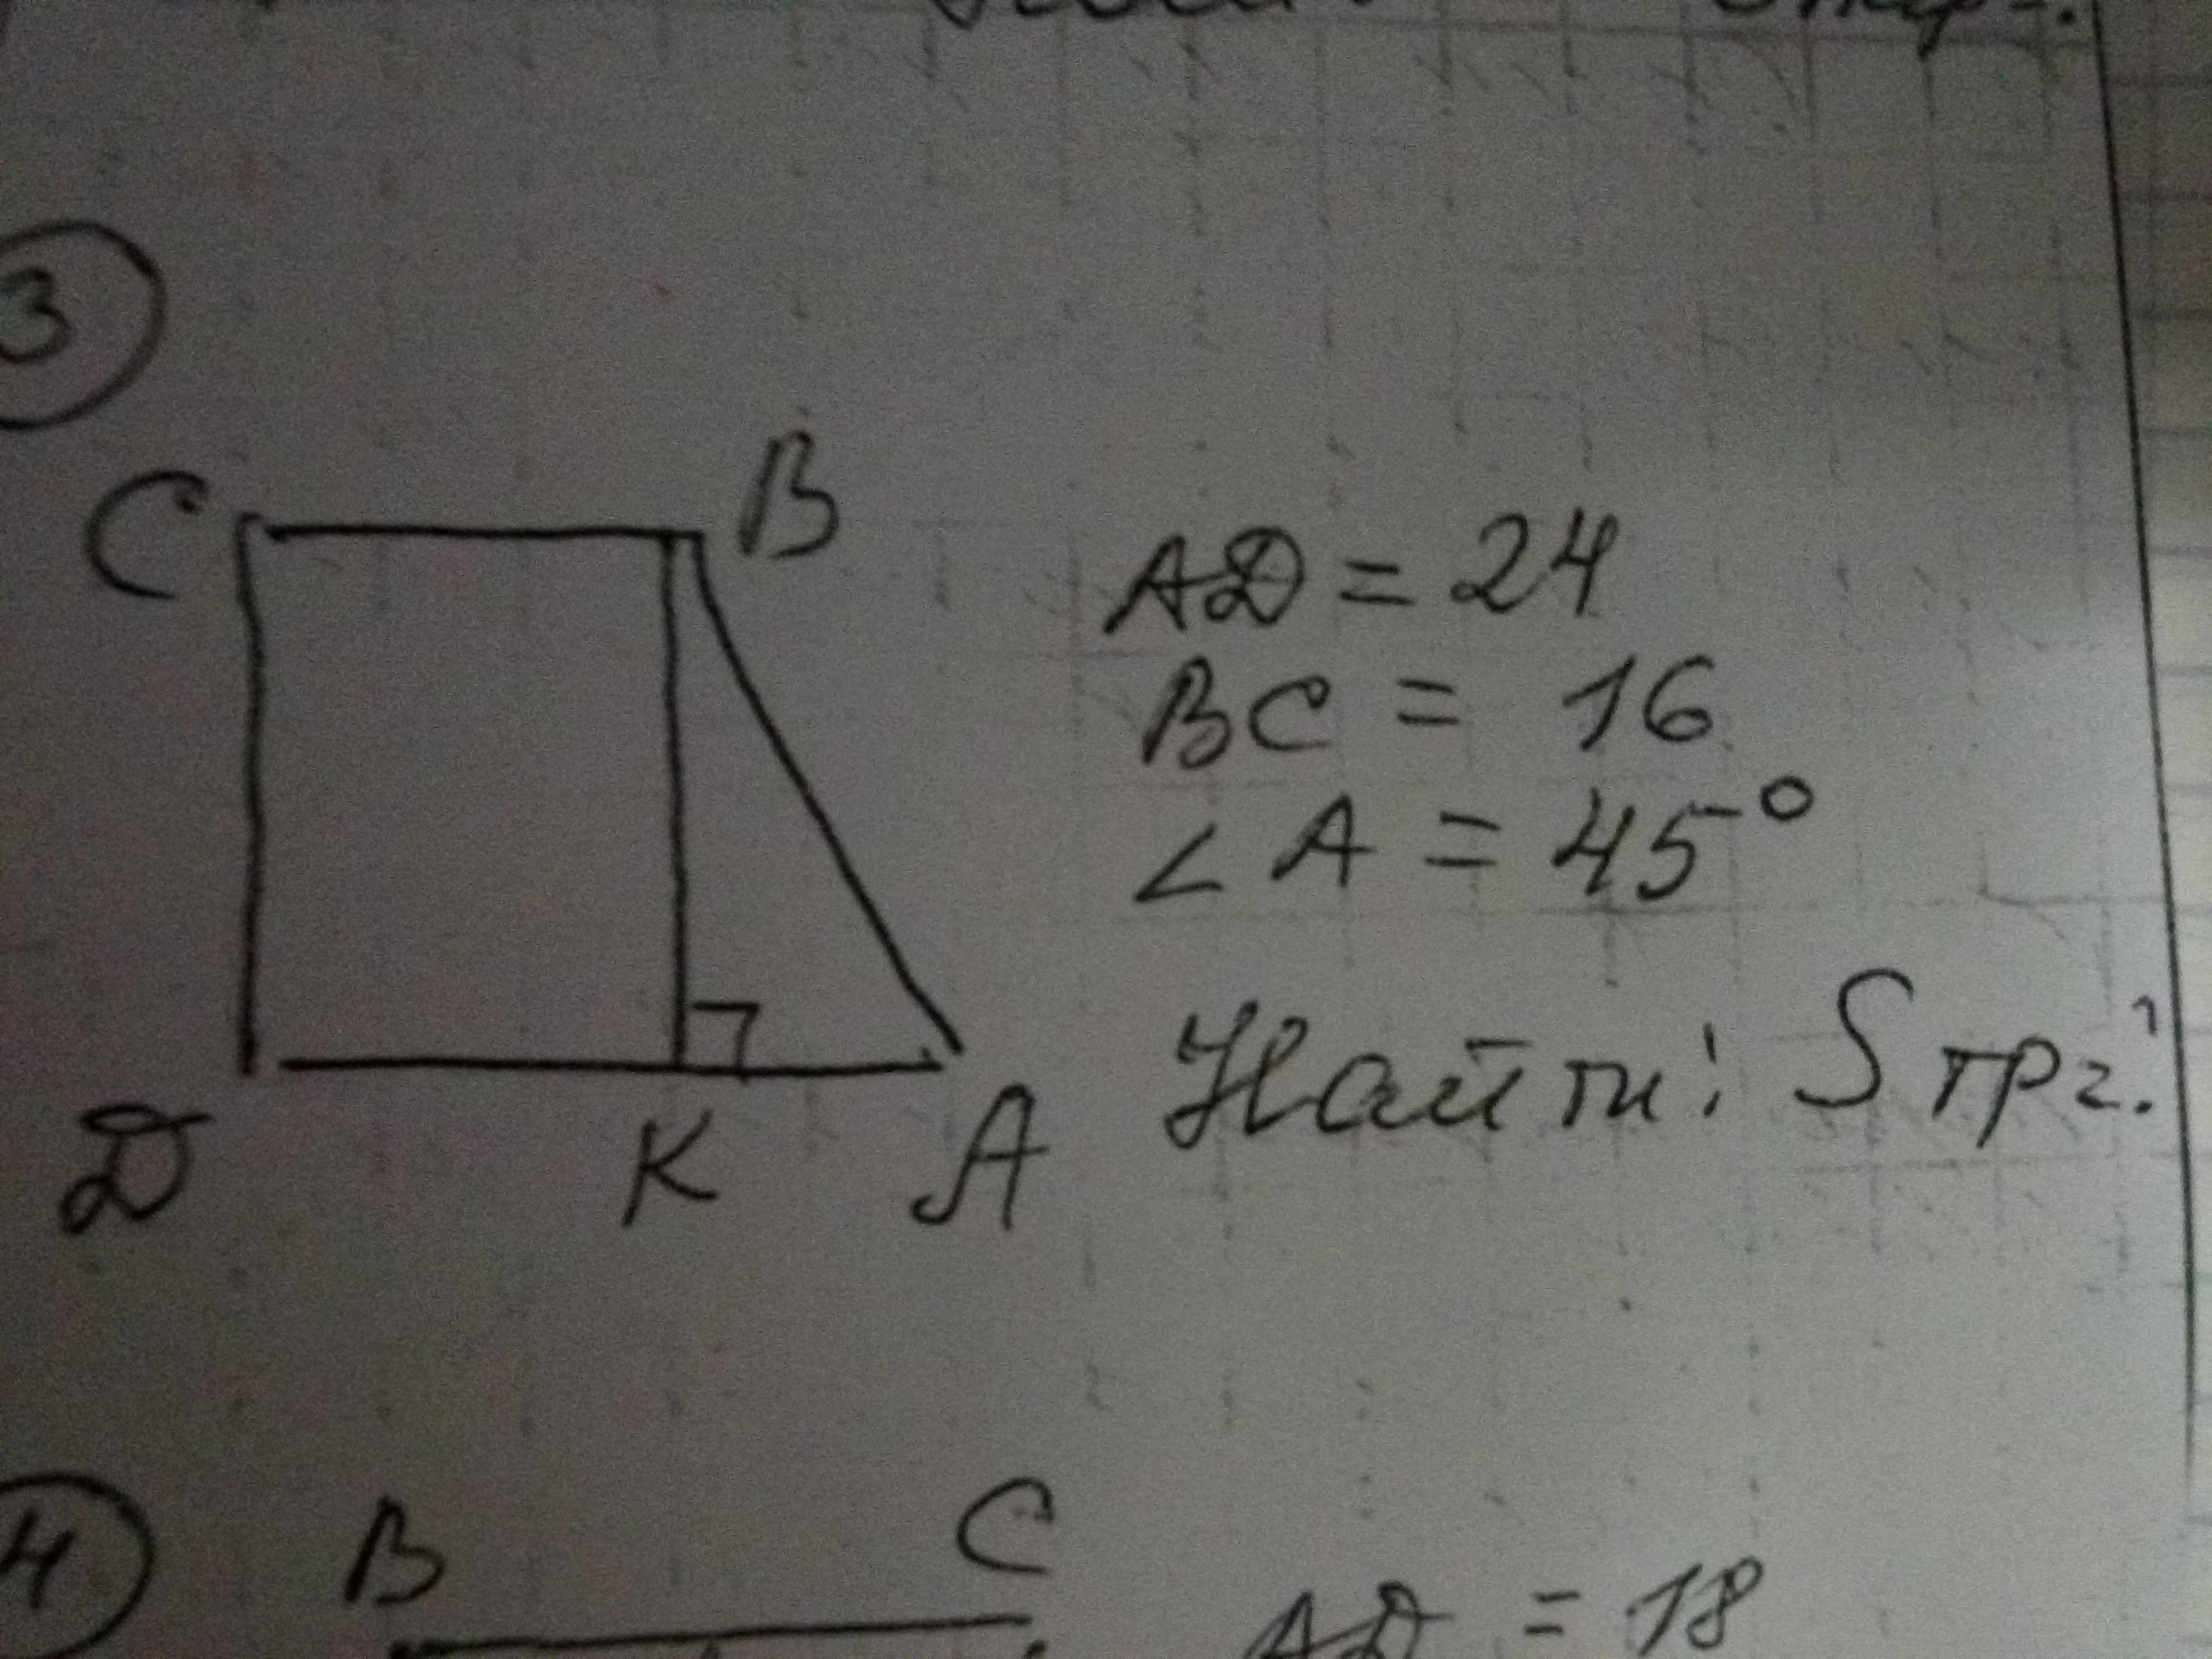 3
C
B
AD = 24
BC = 16
∠A = 45°
Найти: Sтр.?
D
K
A
4
B
C
AD = 18